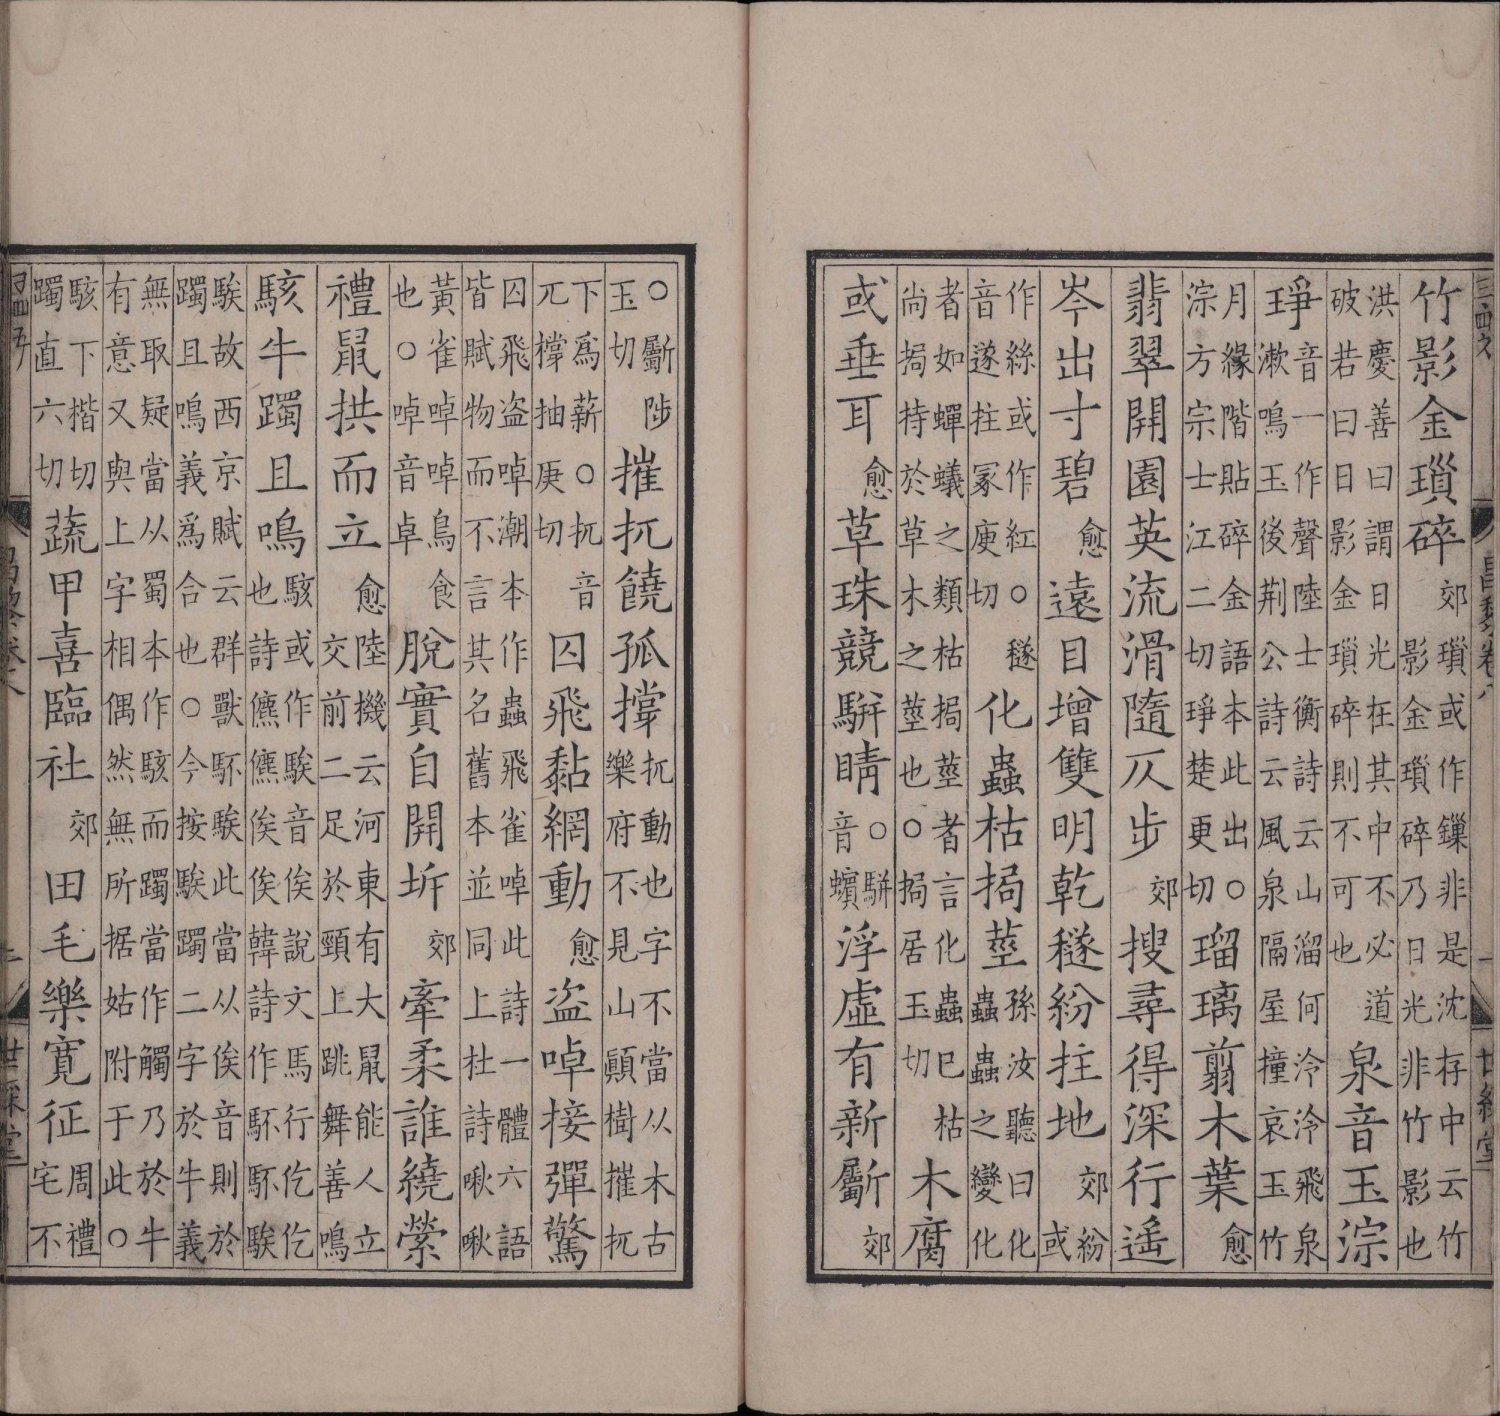 竹影金瑣碎
郊瑣或作鏁非是沈存中云竹
影金瑣碎乃日光非竹影也
洪慶善曰謂日光在其中不必道
破若曰日影金瑣碎則不可也
泉音玉淙
琤
音一作聲陸士衡詩云山溜何泠泠飛泉
漱鳴玉後荆公詩云風泉隔屋撞哀玉竹
月緣階貼碎金語本此出○
淙方宗士江二切琤楚更切
瑠璃翦木葉愈
翡翠開園英流滑隨仄步郊搜尋得深行遥
岑出寸碧愈遠目增雙明乾穟紛拄地郊紛
或
作絲或作紅○穟
音遂拄冢庾切
化蟲枯挶莖
孫汝聽曰化
蟲蟲之變化
者如蟬蟻之類枯挶莖者言化蟲巳枯
尚挶持於草木之莖也○挶居玉切
木腐
或垂耳愈草珠競駢睛
○駢
音蠙
浮虛有新斸郊
○斸陟
玉切
摧扤饒孤撐
扤動也字不當从木古
樂府不見山顚樹摧扤
下爲薪○扤音
兀撐抽庚切
囚飛黏網動愈盗啅接彈驚
囚飛盗啅潮本作蟲飛雀啅此詩一體六語
皆賦物而不言其名舊本並同上杜詩啾啾
黃雀啅啅鳥食
也○啅音卓
脫實自開坼郊牽柔誰繞縈
禮鼠拱而立
愈陸機云河東有大鼠能人立
交前二足於頸上跳舞善鳴
駭牛躅且鳴
駭或作騃音俟說文馬行仡仡
也詩儦儦俟俟韓詩作駓駓騃騃
騃故西京賦云群獸駓騃此當从俟音則於
躅且鳴義爲合也○今按騃躅二字於牛義
無取疑當从蜀本作駭而躅當作觸乃於牛
有意又與上字相偶然無所據姑附于此○
駭下楷切
躅直六切
蔬甲喜臨社郊田毛樂寬征
周禮
宅不